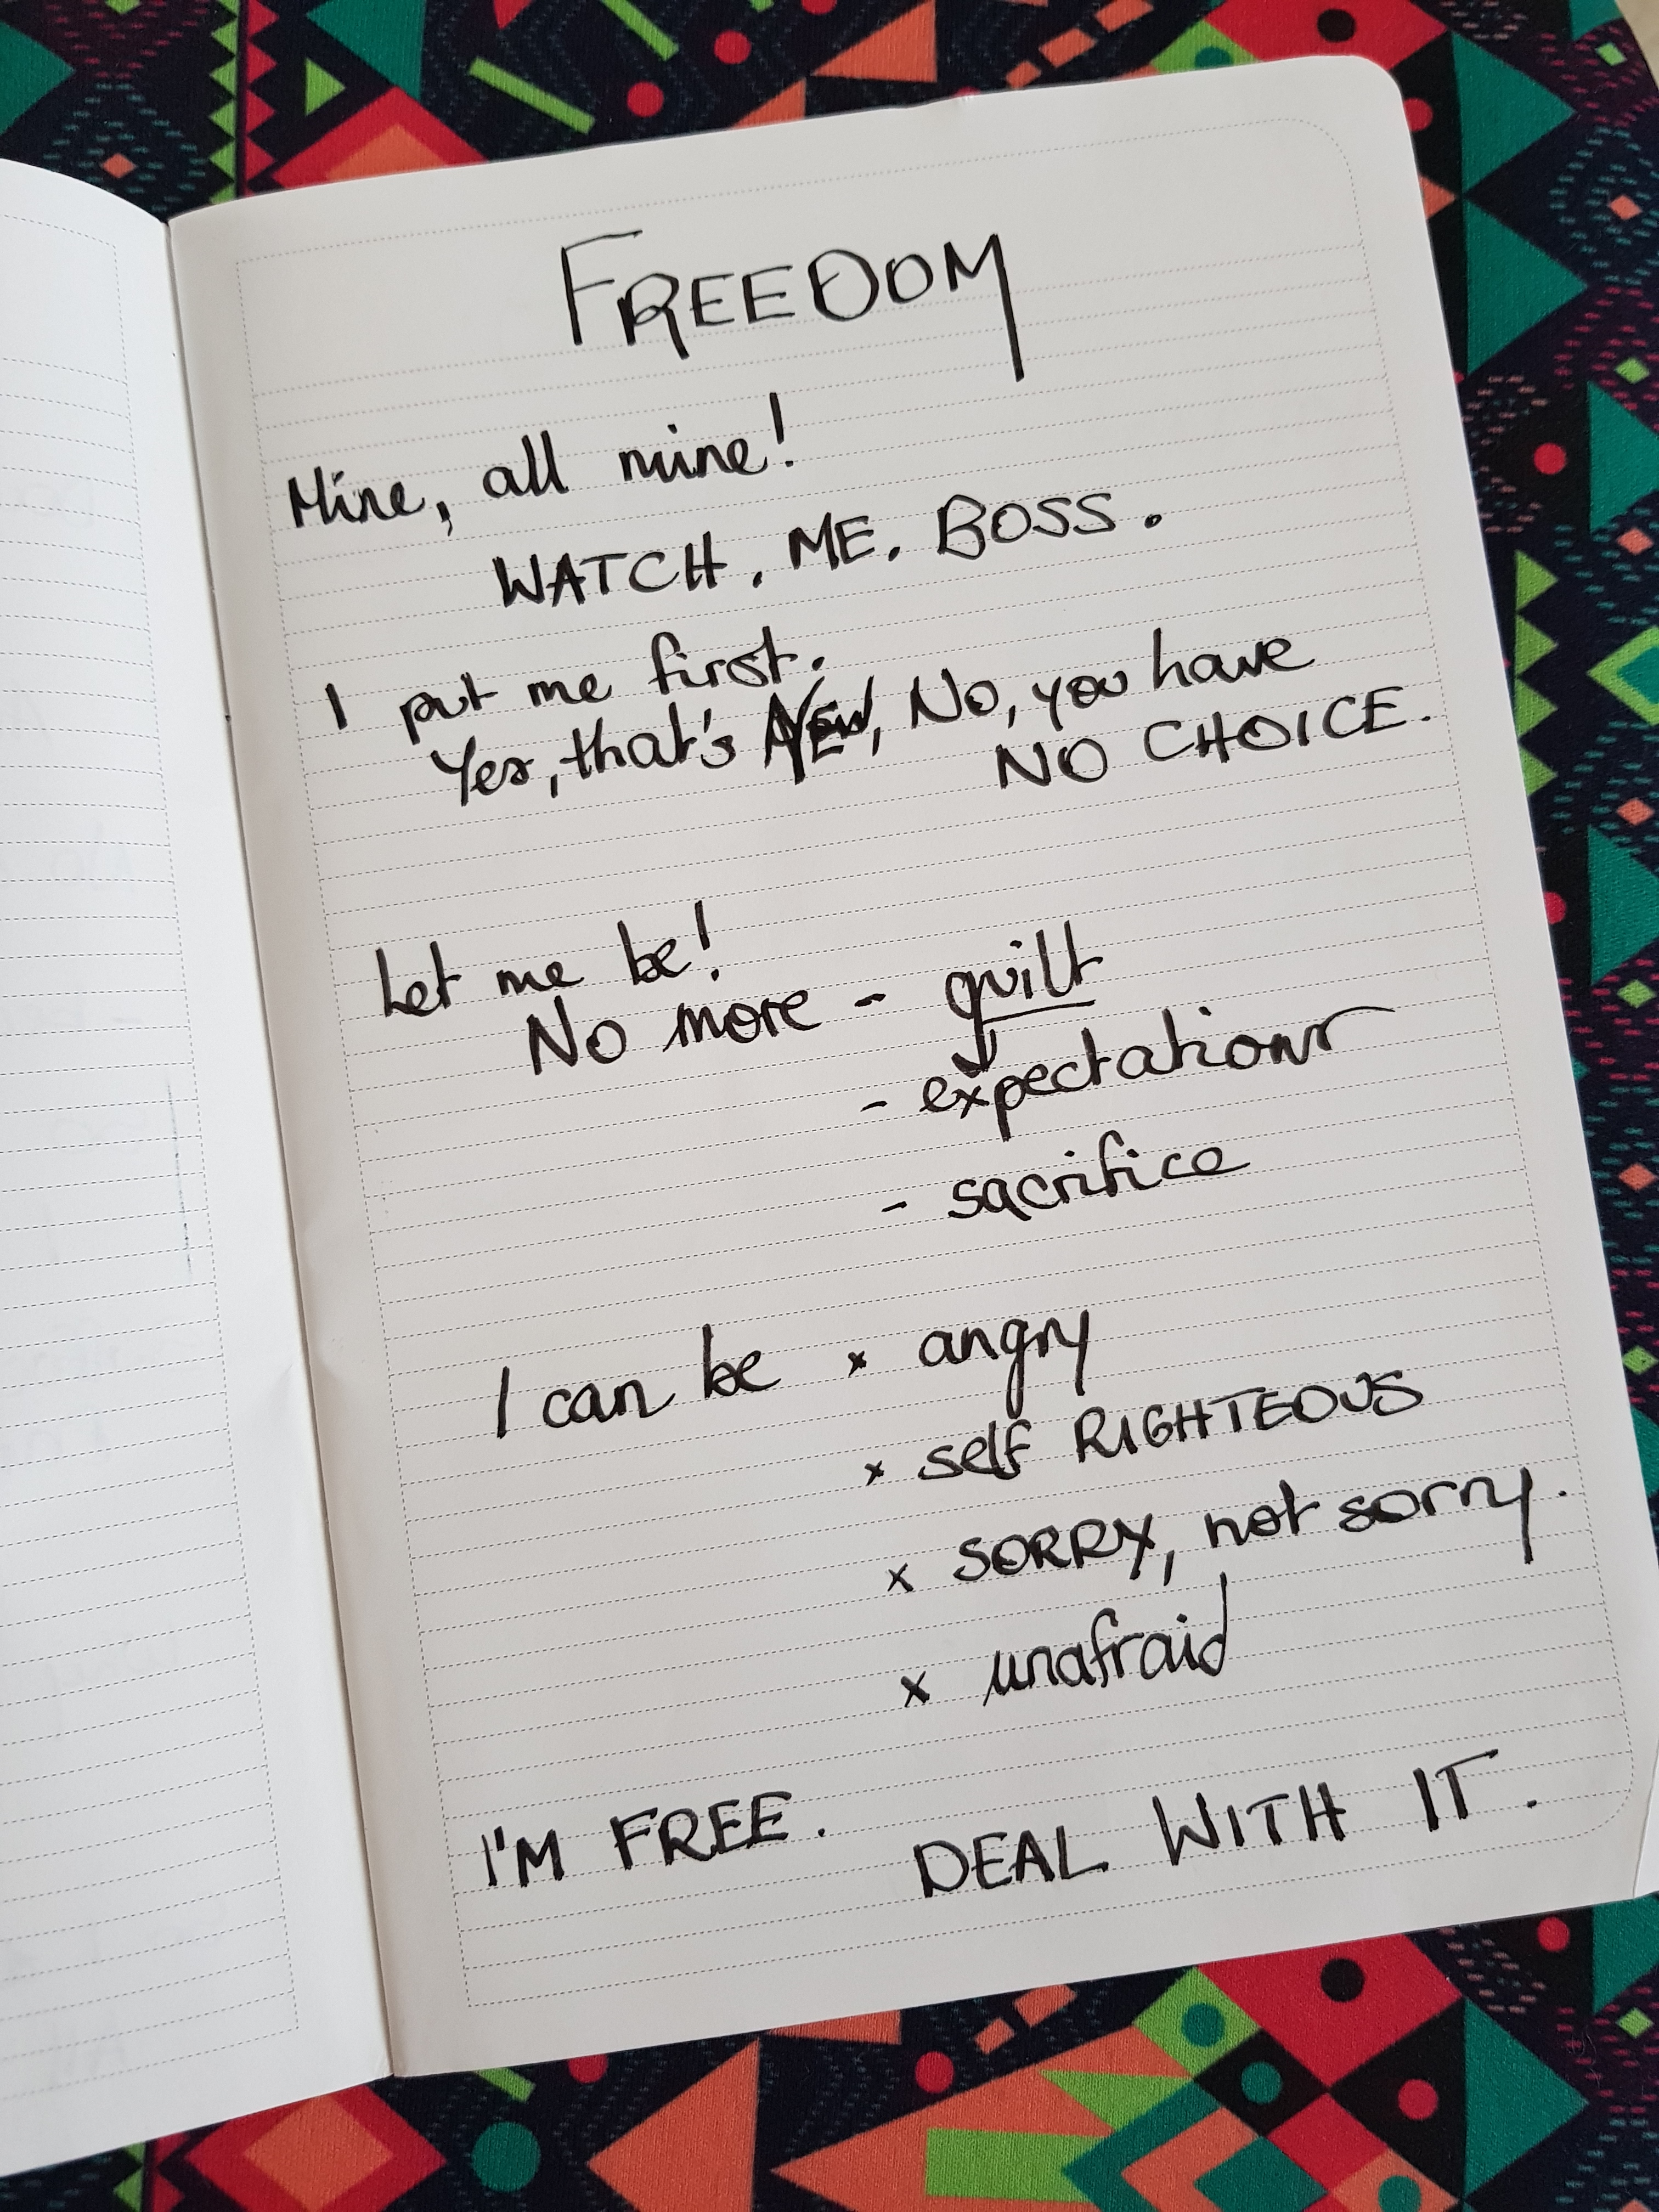 FREEDOM
Mine, all mine!
WATCH. ME. BOSS.
I put me first.
Yes, that's NEW, No, you have
NO CHOICE.
Let me be!
No more - guilt
- expectations
- sacrifice
I can be x angry
x self RIGHTEOUS
x SORRY, not sorry.
x unafraid
I'M FREE. DEAL WITH IT.